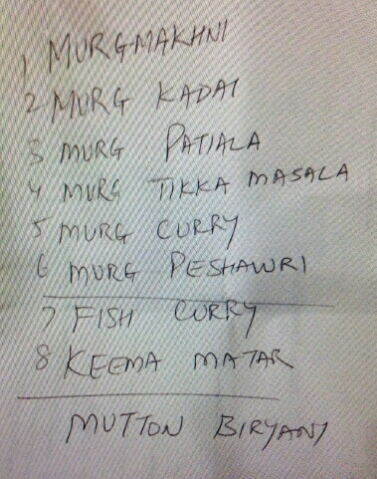 1 MURGMAKHNI
2 MURG KADAI
3 MURG PATIALA
4 MURG TIKKA MASALA
5 MURG CURRY
6 MURG PESHAWRI
7 FISH CURRY
8 KEEMA MATAR
MUTTON BIRYANY